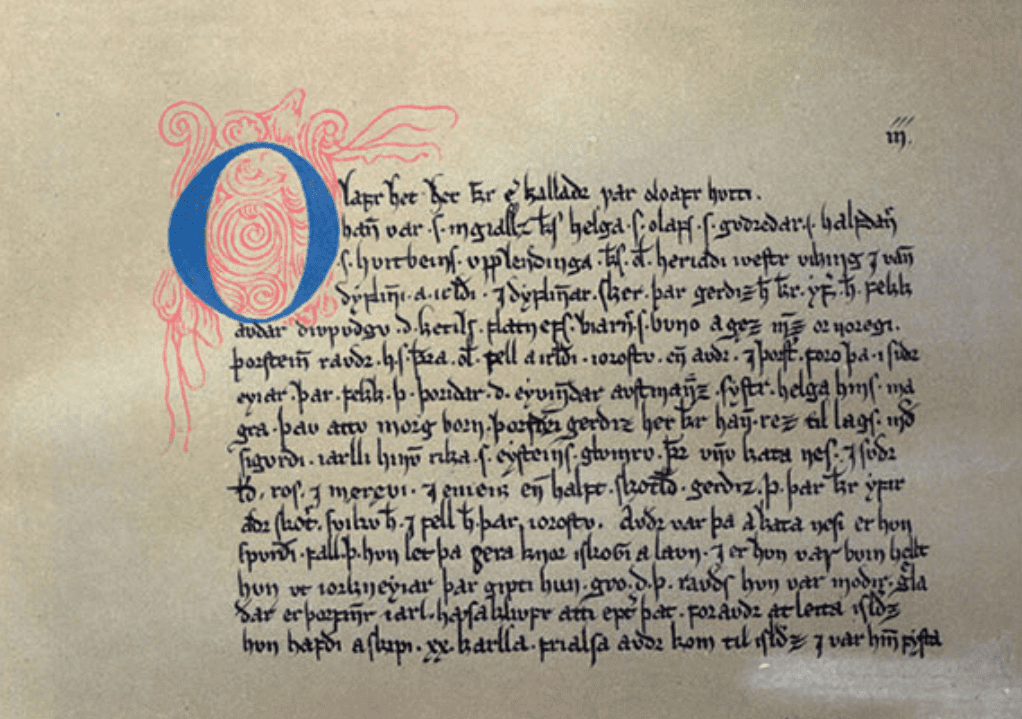 iii.
Olafr het her kr e kalladr var oloafr huiti.
han var .s. ingiallz ks helga .s. olafs .s. gvdredar .s. halfdan
.s. huitbeins. vpplendinga .ks. heriadi westr viking ⁊ van
dyflini. a. irldi. ⁊ dyflinar. sker. þar gerdiz h kr. yf. h. fekk
avdar divpvdgv .d. ketils. flatnefs. biarn .s. buno agez mz or noregi.
þorstein ravdr. h.s. fell a irldi. i orostv. en avdr. ⁊ þorst. foro þa .i sudr
eyiar. þar. fekk. þ. þoridar .d. eyvindar avstmanz. systr. helga hins ma
gra. þav atto morg born. þorstein gerdiz her kr han. rez til lags. md
sigurdi. iarlli hinv rika .s. eysteins. glvmrv. þr vnv kata nes. ⁊ svdr
ld. ros. ⁊ merevi. ⁊ en halft. skotld. gerdiz .þ. þar kr yfir
adr skot. svikv h. ⁊ fell h. þar, i orostv. Avdr var þa a kata nesi er hun
spurdi. fall .þ. hun let þa gera knor i skogi a lavn. ⁊ er hon var buin hellt
hun vt i orkneyiar þar gipti hun. gro .d. þ. ravds hun var modir. gla
dar er þorfinr iarl. havsakliufr atti ept þat. for avdr at leita isldz
hun hafdi a skipi. xx. karlla. frialsa avdr kom til isldz ⁊ var hin fysta